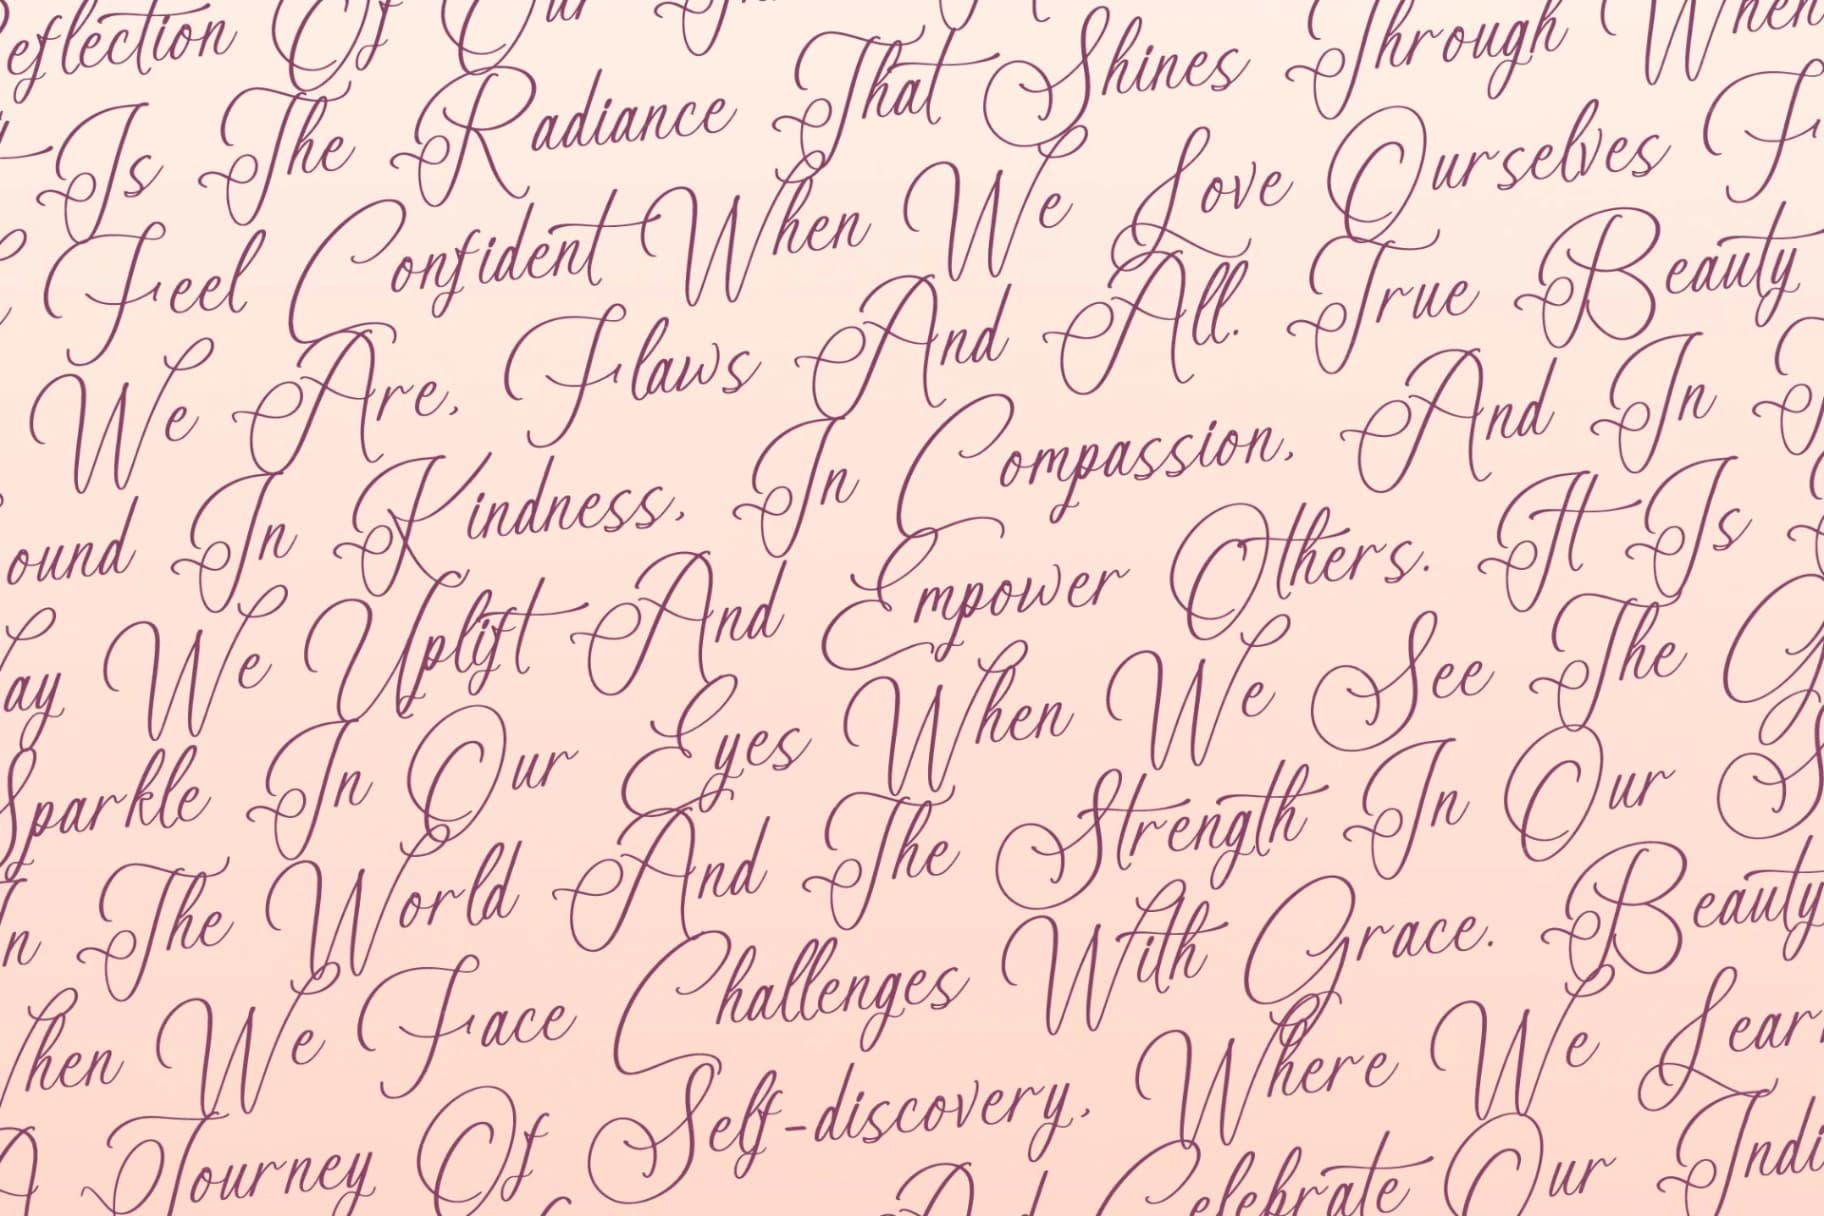 eflection Of Our
Is The Radiance That Shines Through When
Feel Confident When We Love Ourselves F
We Are, Flaws And All. True Beauty
ound In Kindness, In Compassion, And In
ay We Uplift And Empower Others. It Is
Sparkle In Our Eyes When We See The G
In The World And The Strength In Our S
hen We Face Challenges With Grace. Beauty
A Journey Of Self-discovery, Where We Lear
And Celebrate Our Indi